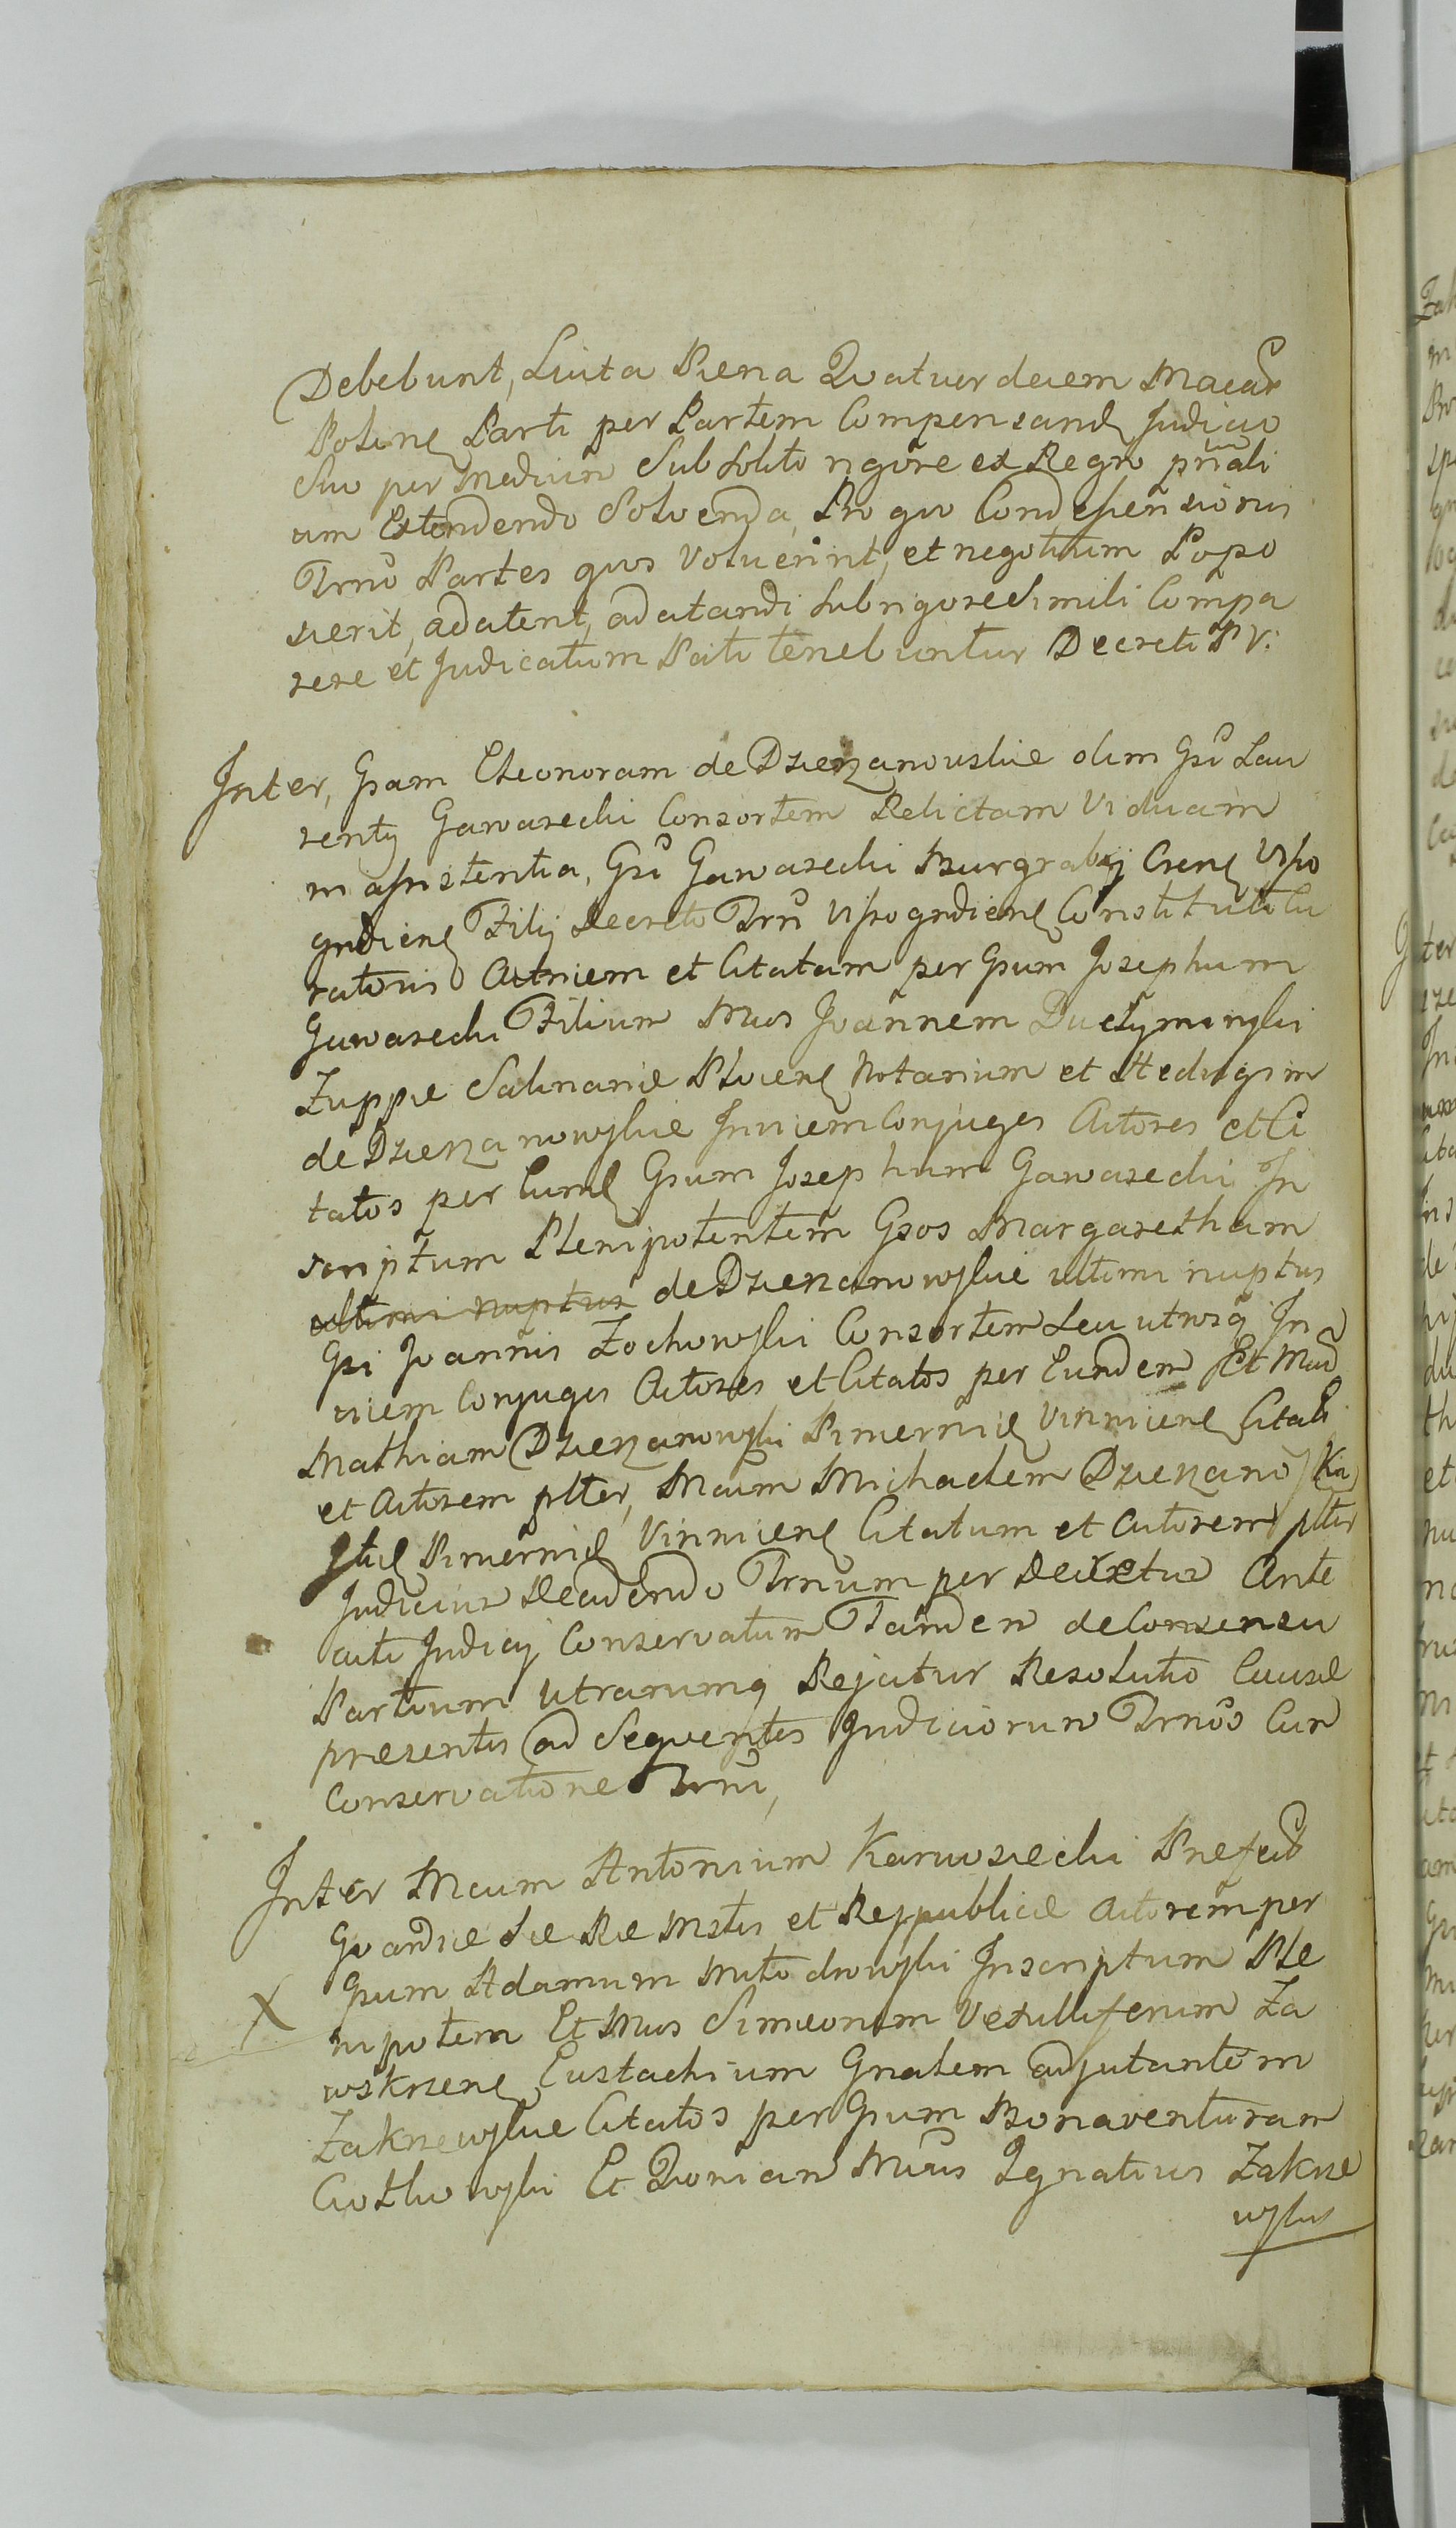 Debebunt, Luita Pæna Quatuordecim Marcar
Polinc Parti per Partem Compensand Judicio
Suo per Medium Sub Solito rigore ex Regro prnali
um Extendendo Solvenda, Pro quo Condescensionis
Trno Partes quos Voluerint, et negotium Popo
scerit, adcitent, adcitandi Sub rigore Simili Compa
rere et Judicatum Pati tenebuntur Decreti P V:
Inter, Gsam Eleonoram de Dzierzanowskie olim Gsi Lau
renty Gawarecki Consortem Relictam Viduam
in assistentia, Gsi Gawarecki Burgrabij Crenc Visso
grdienc Filij Decreto Trni Vissogrdienc Constituto Cu
ratoris Actricem et Citatam per Gsum Josephum
Gawarecki Filium Mcos Joannem Duczyminski
Zuppæ Salinariæ Plocenc Notarium et Hedvigim
de Dzierzanowskie Invicem Conjuges Actores et Ci
tatos per Eund Gsum Josephum Gawarecki In
scriptum Plenipotentem Gsos Margaretham
ultimi nuptus de Dzierzanowskie ultimi nuptus
Gsi Joannis Zochowski Consortem Seu utrosq In
vicem Conjuges Actores et Citatos per Eundem Et Mcud
Mathiam Dzierzanowski Pincernic Vinnicenc Citatu
et Actorem plter, Mcum Michaelem Dzierzano Kia
Pincernic Vinnicenc Citatum et Actorem plter
Judicium Decidendo Trnum per Decretum Ante
acti Judicij Conservatum Tandem de Consensu
Partium Utrarumq Rejcitur Resolutio Causæ
præsentis ad Sequentes Judiciorum Trnos Cum
Conservatione Trni,
Inter Mcum Antonium Karwosiecki Præfect
Gvardiæ Sæ Ræ Mstis et Reipublicæ Actorem per
X
Gsum Adamum Młodnowski Inscriptum Ple
nipotem Et Mcos Simeonem Vexilliferum Za
wskrzenc Eustachium Gnalem adjutantem
Zakrzewskie Citatos per Gsum Bonaventuram
Et Quoniam Mcus Ignatius Zakrze
wski